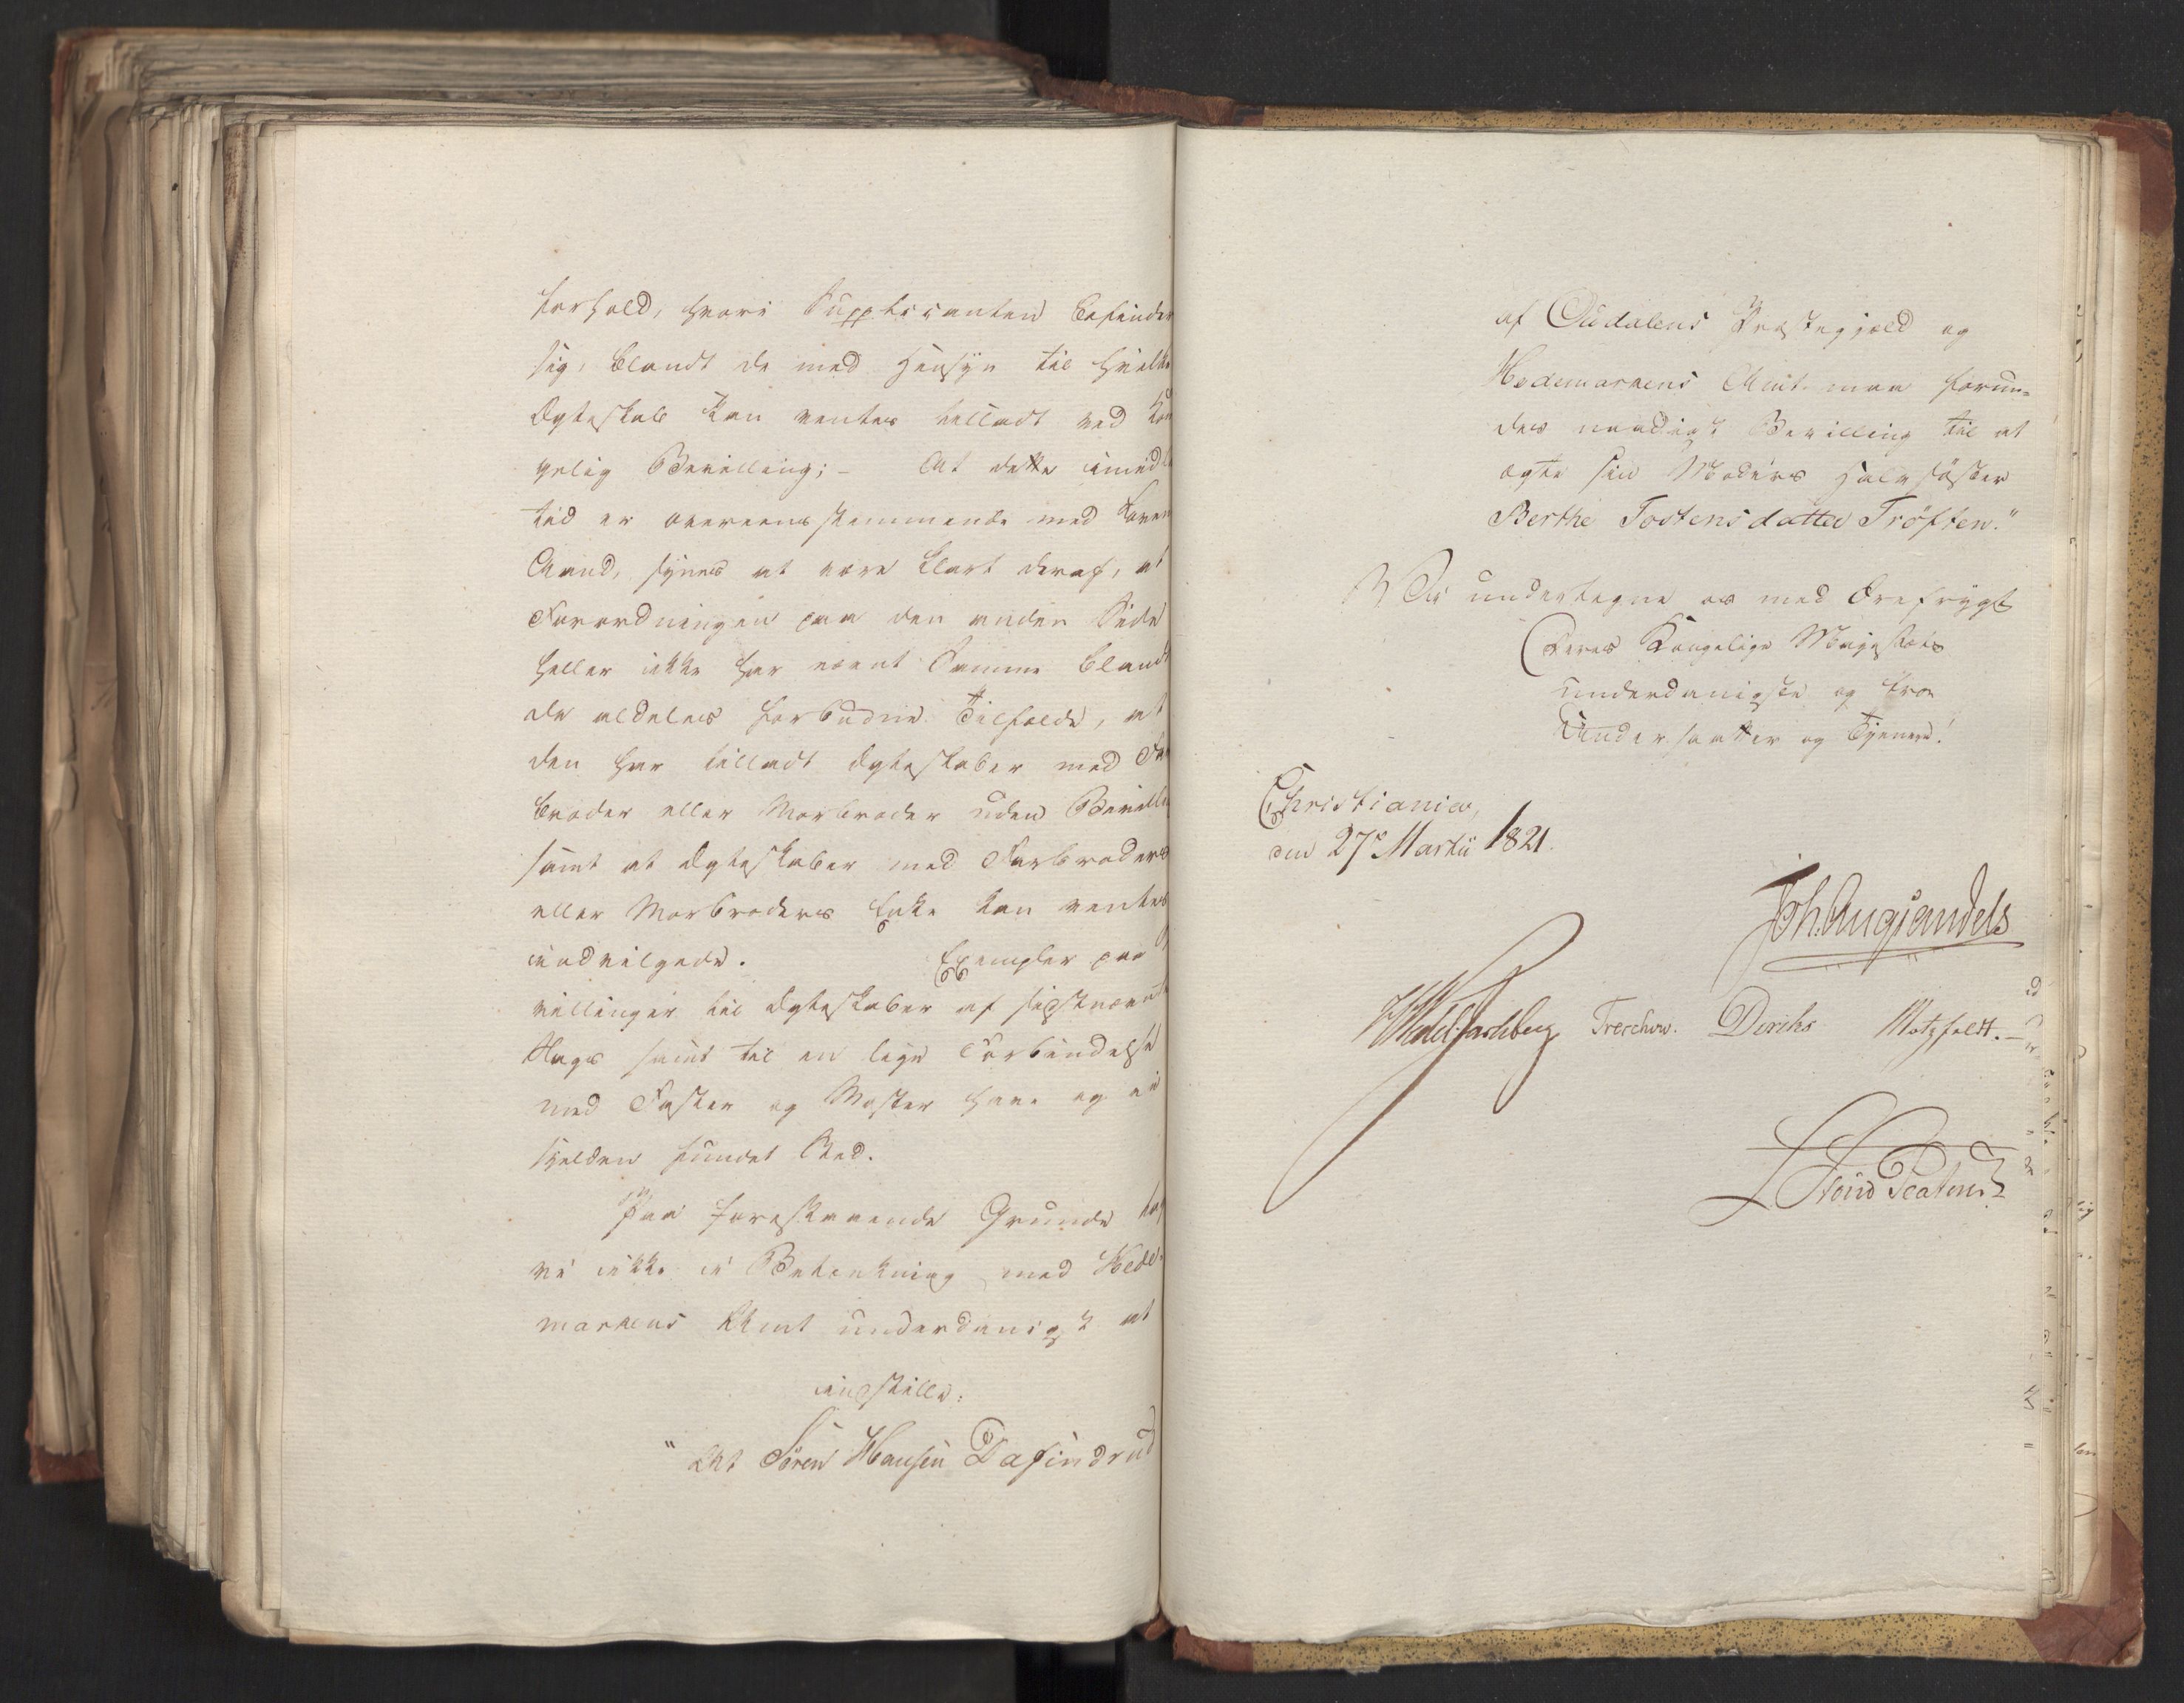 forhold, hvori Supplicanten befinder
sig, blandt de med Hensyn til hvilke
Ægteskab kan ventes tilladt ved Kon
gelig Bevilling; - At dette imidler
tid er overeensstemmende med Lovens
Aand, synes at være klart deraf, at
Forordningen paa den anden Side
heller ikke har nævnt Samme blandt
de aldeles forbudne Tilfælde, at
den har tilladt Ægteskaber med Far
broder eller Morbroder uden Bevilling
samt at Ægteskaber med Farbroders
eller Morbroders Enke kan ventes
indvilgede. Exempler paa
villinger til Ægteskaber af sidstnævnte
Slags samt til en lige Forbindelse
med Faster og Moster have og ei
sjelden fundet Sted.
Paa foreskaaende Grunde tage
vi ikke i Betænkning med Hede-
markens Amt underdanigst at
indstille:
"At Søren Hansen Dafindrud
af Oudalens Præstegjæld og
Hedemarkens Amt maa forun-
des naadigst Bevilling til at
ægte sin Moders Halvsøster
Berthe Tostensdatter Trøften."
Vi undertegne os med Ærefrygt
Deres Kongelige Majestæts
underdanigste og troe
Undersaatter og Tjenere!
Christiania,
den 27de Martii 1821.
Joh. Aug Sandels
HWedel Jarlsberg Treschow. Diriks Motzfeldt. -